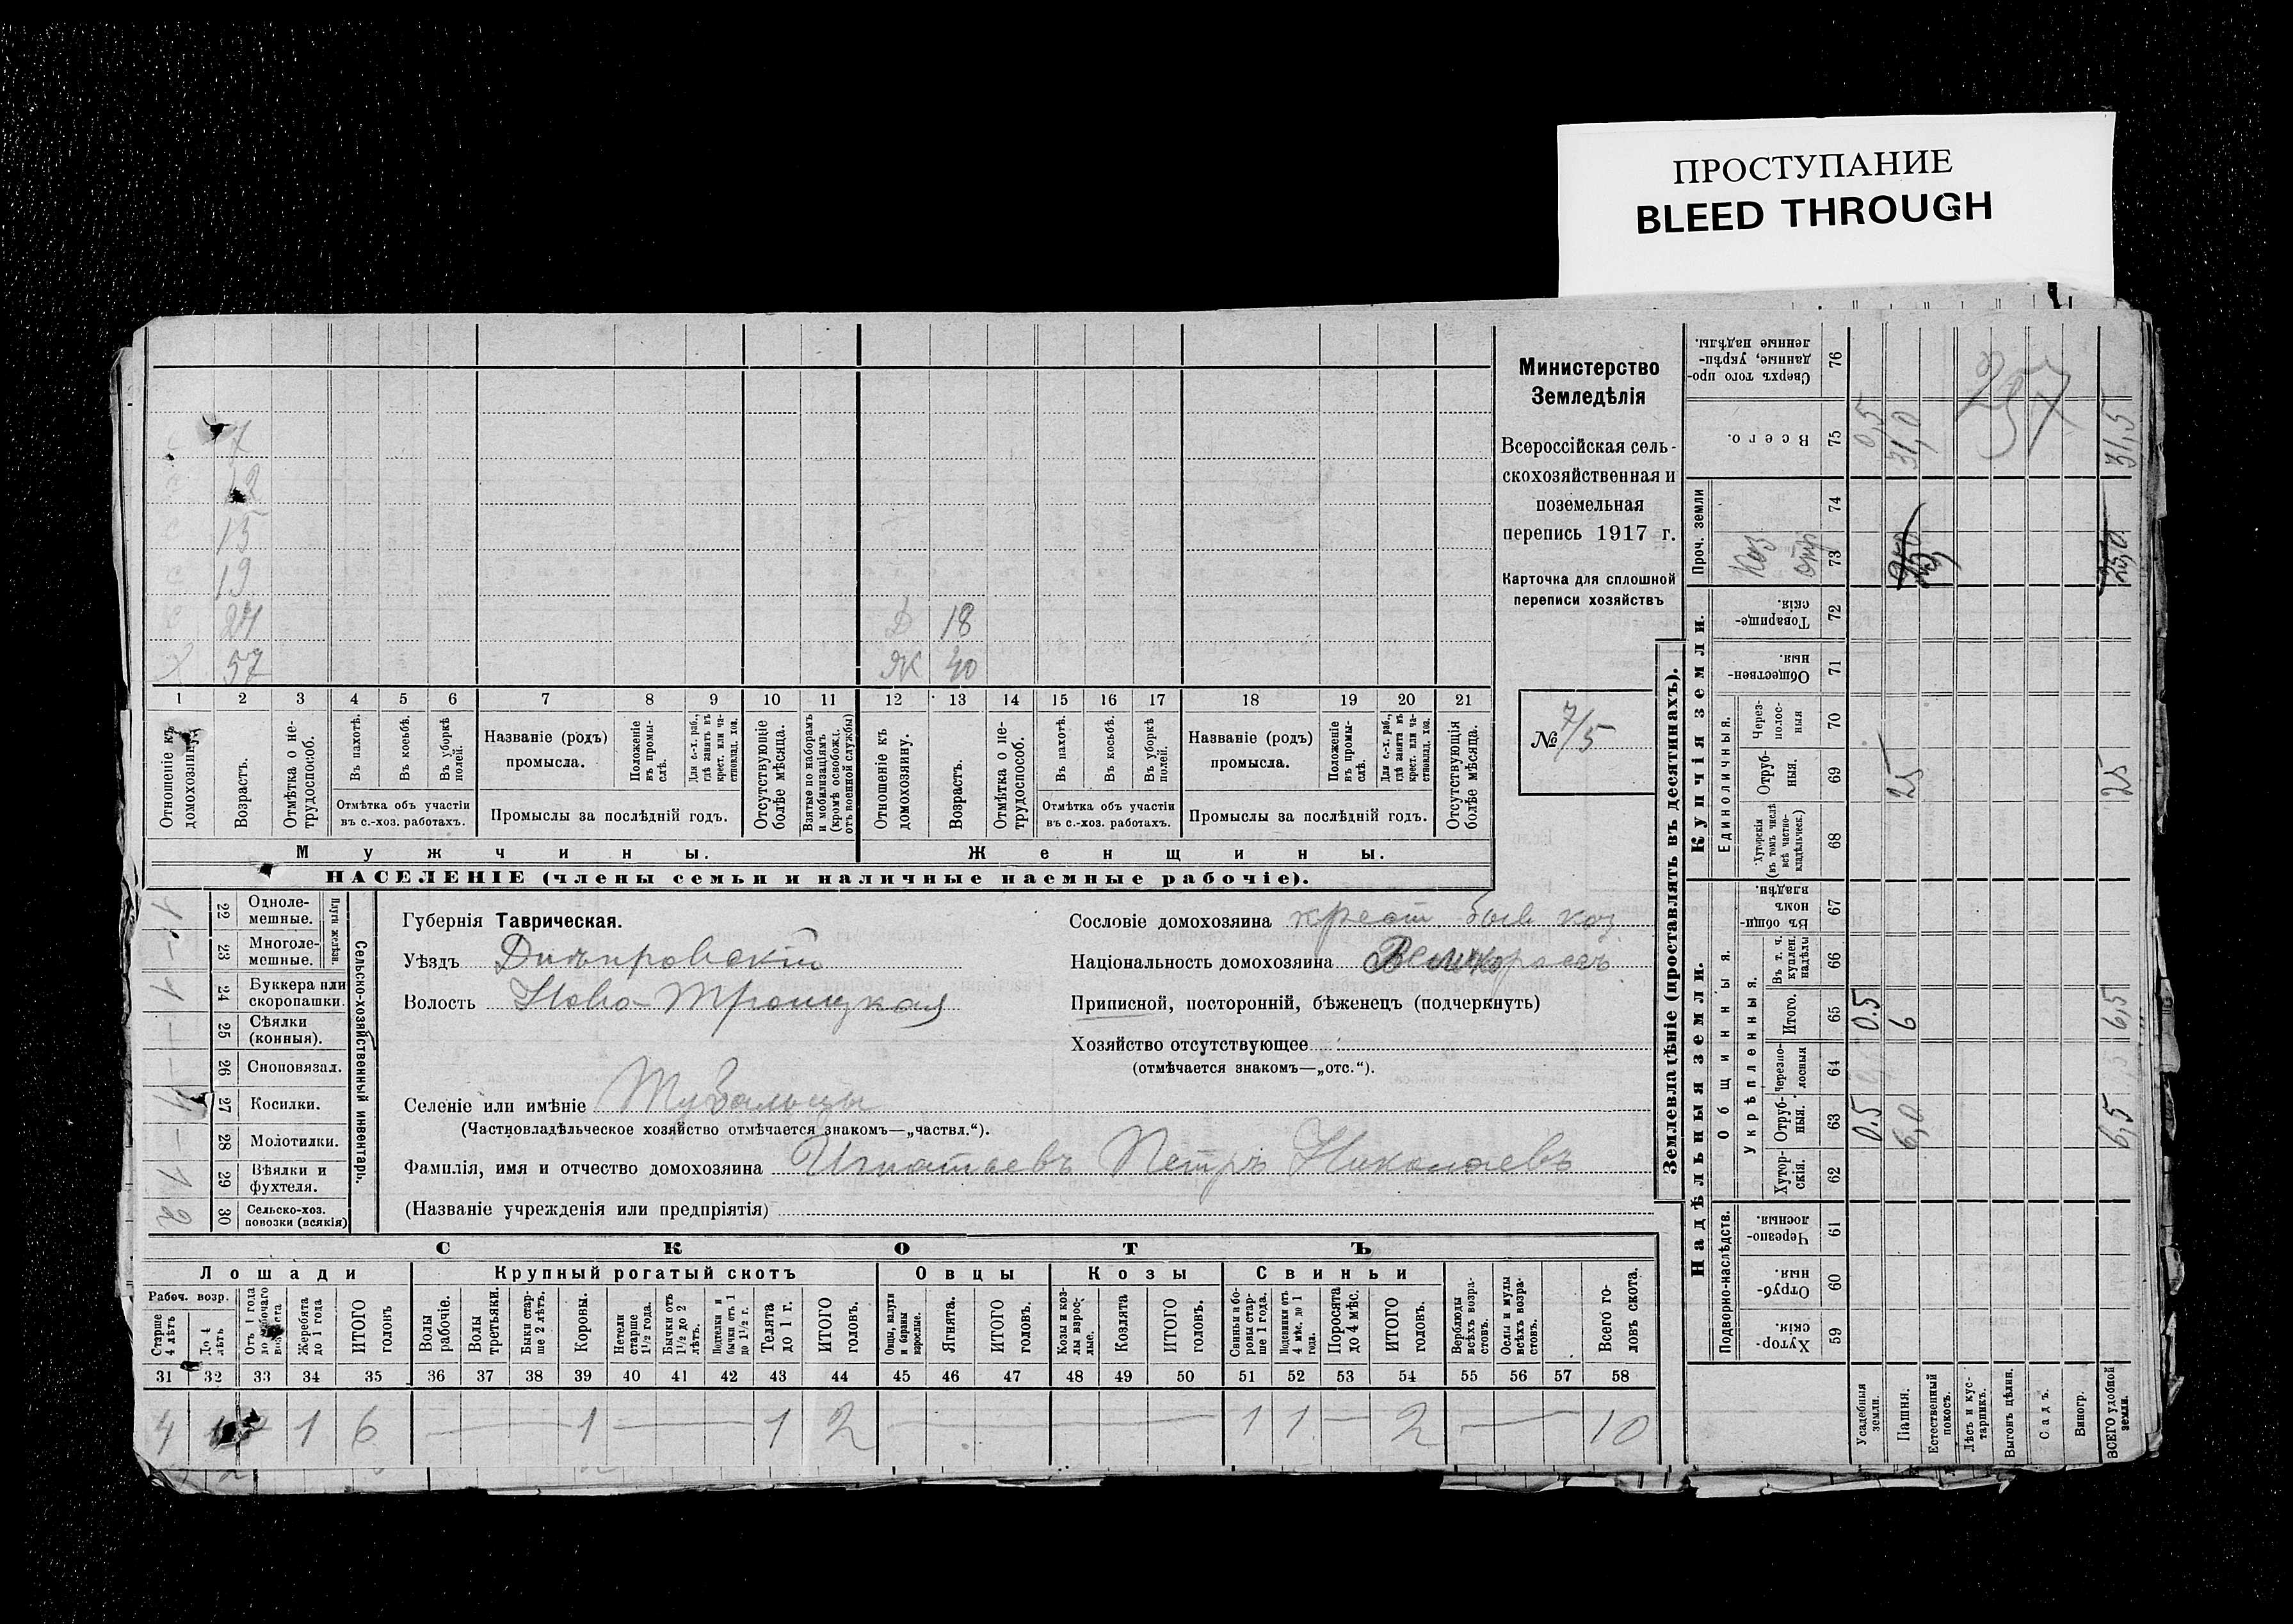 ПРОСТУПАНИЕ
BLEED THROUGH
Министерство
Земледѣлія
Всероссійская сель-
скохозяйственная и
поземельная
перепись 1917 г.
Карточка для сплошной
переписи хозяйствъ
№ 7/5
7
12
15
19
24 Д 18
Х 57 Ж 40
1 2 3 4 5 6 7 8 9 10 11 12 13 14 15 16 17 18 19 20 21
Отношеніе къ домохозяину.
Возрастъ.
Отмѣтка о не-трудоспособ.
Въ пахотѣ.
Въ косьбѣ.
Въ уборкѣ полей.
Отмѣтка объ участіи
въ с.-хоз. работахъ.
Названіе (родъ)
промысла.
Положеніе въ промы-слѣ.
Для с.-х. раб., гдѣ занятъ въ крест. или ча-стновлад. хоз.
Промыслы за послѣдній годъ.
Отсутствующіе болѣе мѣсяца.
Взятые по наборамъ и мобилизаціямъ (кромѣ освобожд. отъ военной службы)
Отношеніе къ домохозяину.
Возрастъ.
Отмѣтка о не-трудоспособ.
Въ пахотѣ.
Въ косьбѣ.
Въ уборкѣ полей.
Отмѣтка объ участіи
въ с.-хоз. работахъ.
Названіе (родъ)
промысла.
Положеніе въ промы-слѣ.
Для с.-х. раб., гдѣ занята въ крест. или ча-стновлад. хоз.
Промыслы за послѣдній годъ.
Отсутствующія болѣе мѣсяца.
Мужчины. Женщины.
НАСЕЛЕНІЕ (члены семьи и наличные наемные рабочіе).
Сельско-хозяйственный инвентарь.
Плуги желѣзн.
1 22 Одноле-мешные.
— 23 Многоле-мешные.
1 24 Буккера или скоропашки.
— 25 Сѣялки (конныя).
— 26 Сноповязал.
1 27 Косилки.
— 28 Молотилки.
1 29 Вѣялки и фухтеля.
2 30 Сельско-хоз. повозки (всякія)
Губернія Таврическая.
Уѣздъ Днѣпровскій
Волость Ново-Троицкая
Сословіе домохозяина крест быв коз
Національность домохозяина Великороссъ
Приписной, посторонній, бѣженецъ (подчеркнуть)
Хозяйство отсутствующее
(отмѣчается знакомъ—„отс.“).
Селеніе или имѣніе
(Частновладѣльческое хозяйство отмѣчается знакомъ—„частвл.“).
Фамилія, имя и отчество домохозяина Игнатьевъ Петръ Николаевъ
(Названіе учрежденія или предпріятія)
СКОТЪ
Лошади Крупный рогатый скотъ Овцы Козы Свиньи
Рабоч. возр.
Старше 4 лѣтъ
До 4 лѣтъ
Отъ 1 года до рабочаго возраста
Жеребята до 1 года
ИТОГО головъ
Волы рабочіе.
Волы третьяки.
Быки стар-ше 2 лѣтъ.
Коровы.
Нетели старше 1½ года.
Бычки отъ 1½ до 2 лѣтъ.
Подтелки и бычки отъ 1 до 1½ г.
Телята до 1 г.
ИТОГО головъ.
Овцы, валухи и бараны взрослые.
Ягнята.
ИТОГО головъ.
Козы и коз-лы взрос-лые.
Козлята
ИТОГО головъ.
Свиньи и бо-ровы стар-ше 1 года.
Подсвинки отъ 4 мѣс. до 1 года.
Поросята до 4 мѣс.
ИТОГО головъ.
Верблюды всѣхъ возра-стовъ.
Ослы и мулы всѣхъ возра-стовъ.
Всего го-ловъ скота.
31 32 33 34 35 36 37 38 39 40 41 42 43 44 45 46 47 48 49 50 51 52 53 54 55 56 57 58
4 1 6 — 1 — 1 2 — 1 1 — 2 — 10
Землевладѣніе (проставлять въ десятинахъ).
Надѣльныя земли. Купчія земли. Проч. земли
Подворно-наслѣдств.
Общинныя.
Укрѣпленныя.
Единоличныя.
59 Хутор-скія.
60 Отруб-ныя.
61 Черезпо-лосныя.
62 Хутор-скія.
63 Отруб-ныя.
64 Черезпо-лосныя
65 Итого.
66 Въ т. ч. куплен. надѣлы
67 Въ общи-номъ владѣн.
68 Хуторскія (въ томъ числѣ всѣ частно-владѣльческ.)
69 Отруб-ныя.
70 Через-полос-ныя
71 Обществен-ныя.
72 Товарище-скія.
73 Каз отр
74
75 Всего.
76 Сверхъ того про-данные, укрѣп-ленные надѣлы.
Усадебныя земли. 0.5 0.5 0,5
Пашня. 6,0 6 25 31,0
Естественный покосъ.
Лѣсъ и кус-тарникъ.
Выгонъ цѣлин.
Садъ.
Виногр.
ВСЕГО удобной земли. 6,5 6,5 25 25,0 31,5
257